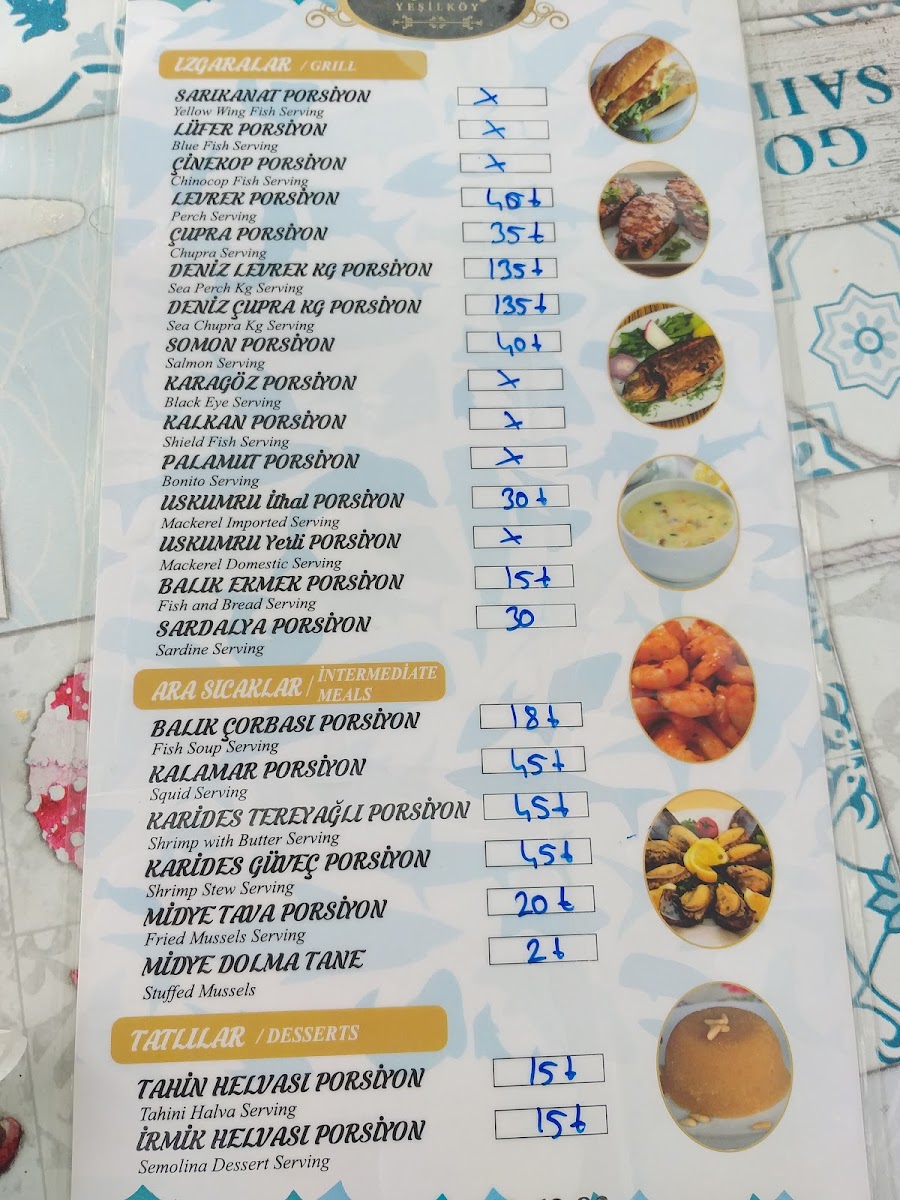 YEŞİLKÖY
IZGARALAR / GRILL
SARIKANAT PORSİYON X
Yellow Wing Fish Serving
LÜFER PORSİYON X
Blue Fish Serving
ÇİNEKOP PORSİYON X
Chinocop Fish Serving
LEVREK PORSİYON 40₺
Perch Serving
ÇUPRA PORSİYON 35₺
Chupra Serving
DENİZ LEVREK KG PORSİYON 135₺
Sea Perch Kg Serving
DENİZ ÇUPRA KG PORSİYON 135₺
Sea Chupra Kg Serving
SOMON PORSİYON 40₺
Salmon Serving
KARAGÖZ PORSİYON X
Black Eye Serving
KALKAN PORSİYON X
Shield Fish Serving
PALAMUT PORSİYON X
Bonito Serving
USKUMRU İthal PORSİYON 30₺
Mackerel Imported Serving
USKUMRU Yerli PORSİYON X
Mackerel Domestic Serving
BALIK EKMEK PORSİYON 15₺
Fish and Bread Serving
SARDALYA PORSİYON 30
Sardine Serving
ARA SICAKLAR / İNTERMEDİATE
MEALS
BALIK ÇORBASI PORSİYON 18₺
Fish Soup Serving
KALAMAR PORSİYON 45₺
Squid Serving
KARİDES TEREYAĞLI PORSİYON 45₺
Shrimp with Butter Serving
KARİDES GÜVEÇ PORSİYON 45₺
Shrimp Stew Serving
MİDYE TAVA PORSİYON 20₺
Fried Mussels Serving
MİDYE DOLMA TANE 2₺
Stuffed Mussels
TATLILAR / DESSERTS
TAHİN HELVASI PORSİYON 15₺
Tahini Halva Serving
İRMİK HELVASI PORSİYON 15₺
Semolina Dessert Serving
GO
SAIL